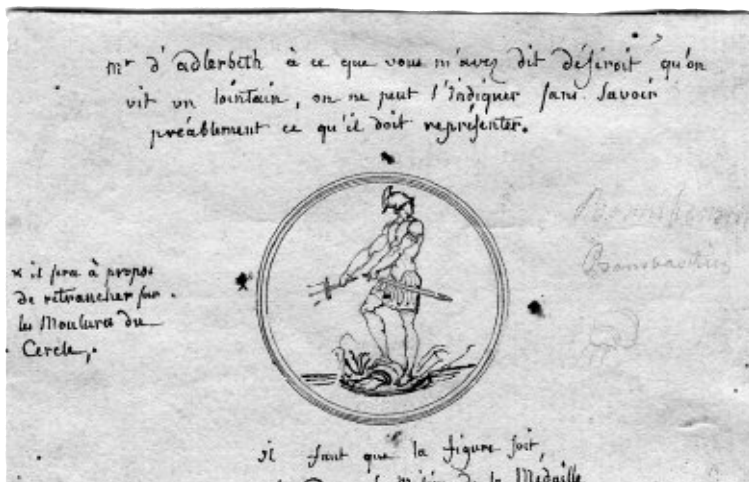 mr d'adlerbeth à ce que vous m'avez dit désiroit qu'on
vit un lointain, on ne peut l'indiquer sans savoir
préablement ce qu'il doit représenter.
x il sera à propos
de retrancher sur
les Moulures du
Cercle,.
il faut que la figure soit,
de la Medaille